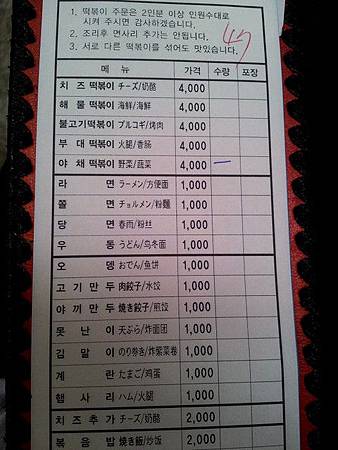 1. 떡볶이 주문은 2인분 이상 인원수대로
시켜 주시면 감사하겠습니다.
2. 조리후 면사리 추가는 안됩니다.
3. 서로 다른 떡볶이를 섞어도 맛있습니다.
메뉴 가격 수량 포장
치즈떡볶이 チーズ/奶酪 4,000
해물떡볶이 海鮮/海鲜 4,000
불고기떡볶이 プルコギ/烤肉 4,000
부대떡볶이 火腿/香肠 4,000
야채떡볶이 野菜/蔬菜 4,000
라면 ラーメン/方便面 1,000
쫄면 チョルメン/粉麵 1,000
당면 春雨/粉丝 1,000
우동 うどん/乌冬面 1,000
오뎅 おでん/鱼饼 1,000
고기만두 肉餃子/水饺 1,000
야끼만두 焼き餃子/煎饺 1,000
못난이 天ぷら/炸面团 1,000
김말이 のり巻き/炸紫菜卷 1,000
계란 たまご/鸡蛋 1,000
햄사리 ハム/火腿 1,000
치즈추가 チーズ/奶酪 2,000
볶음밥 焼き飯/炒饭 2,000